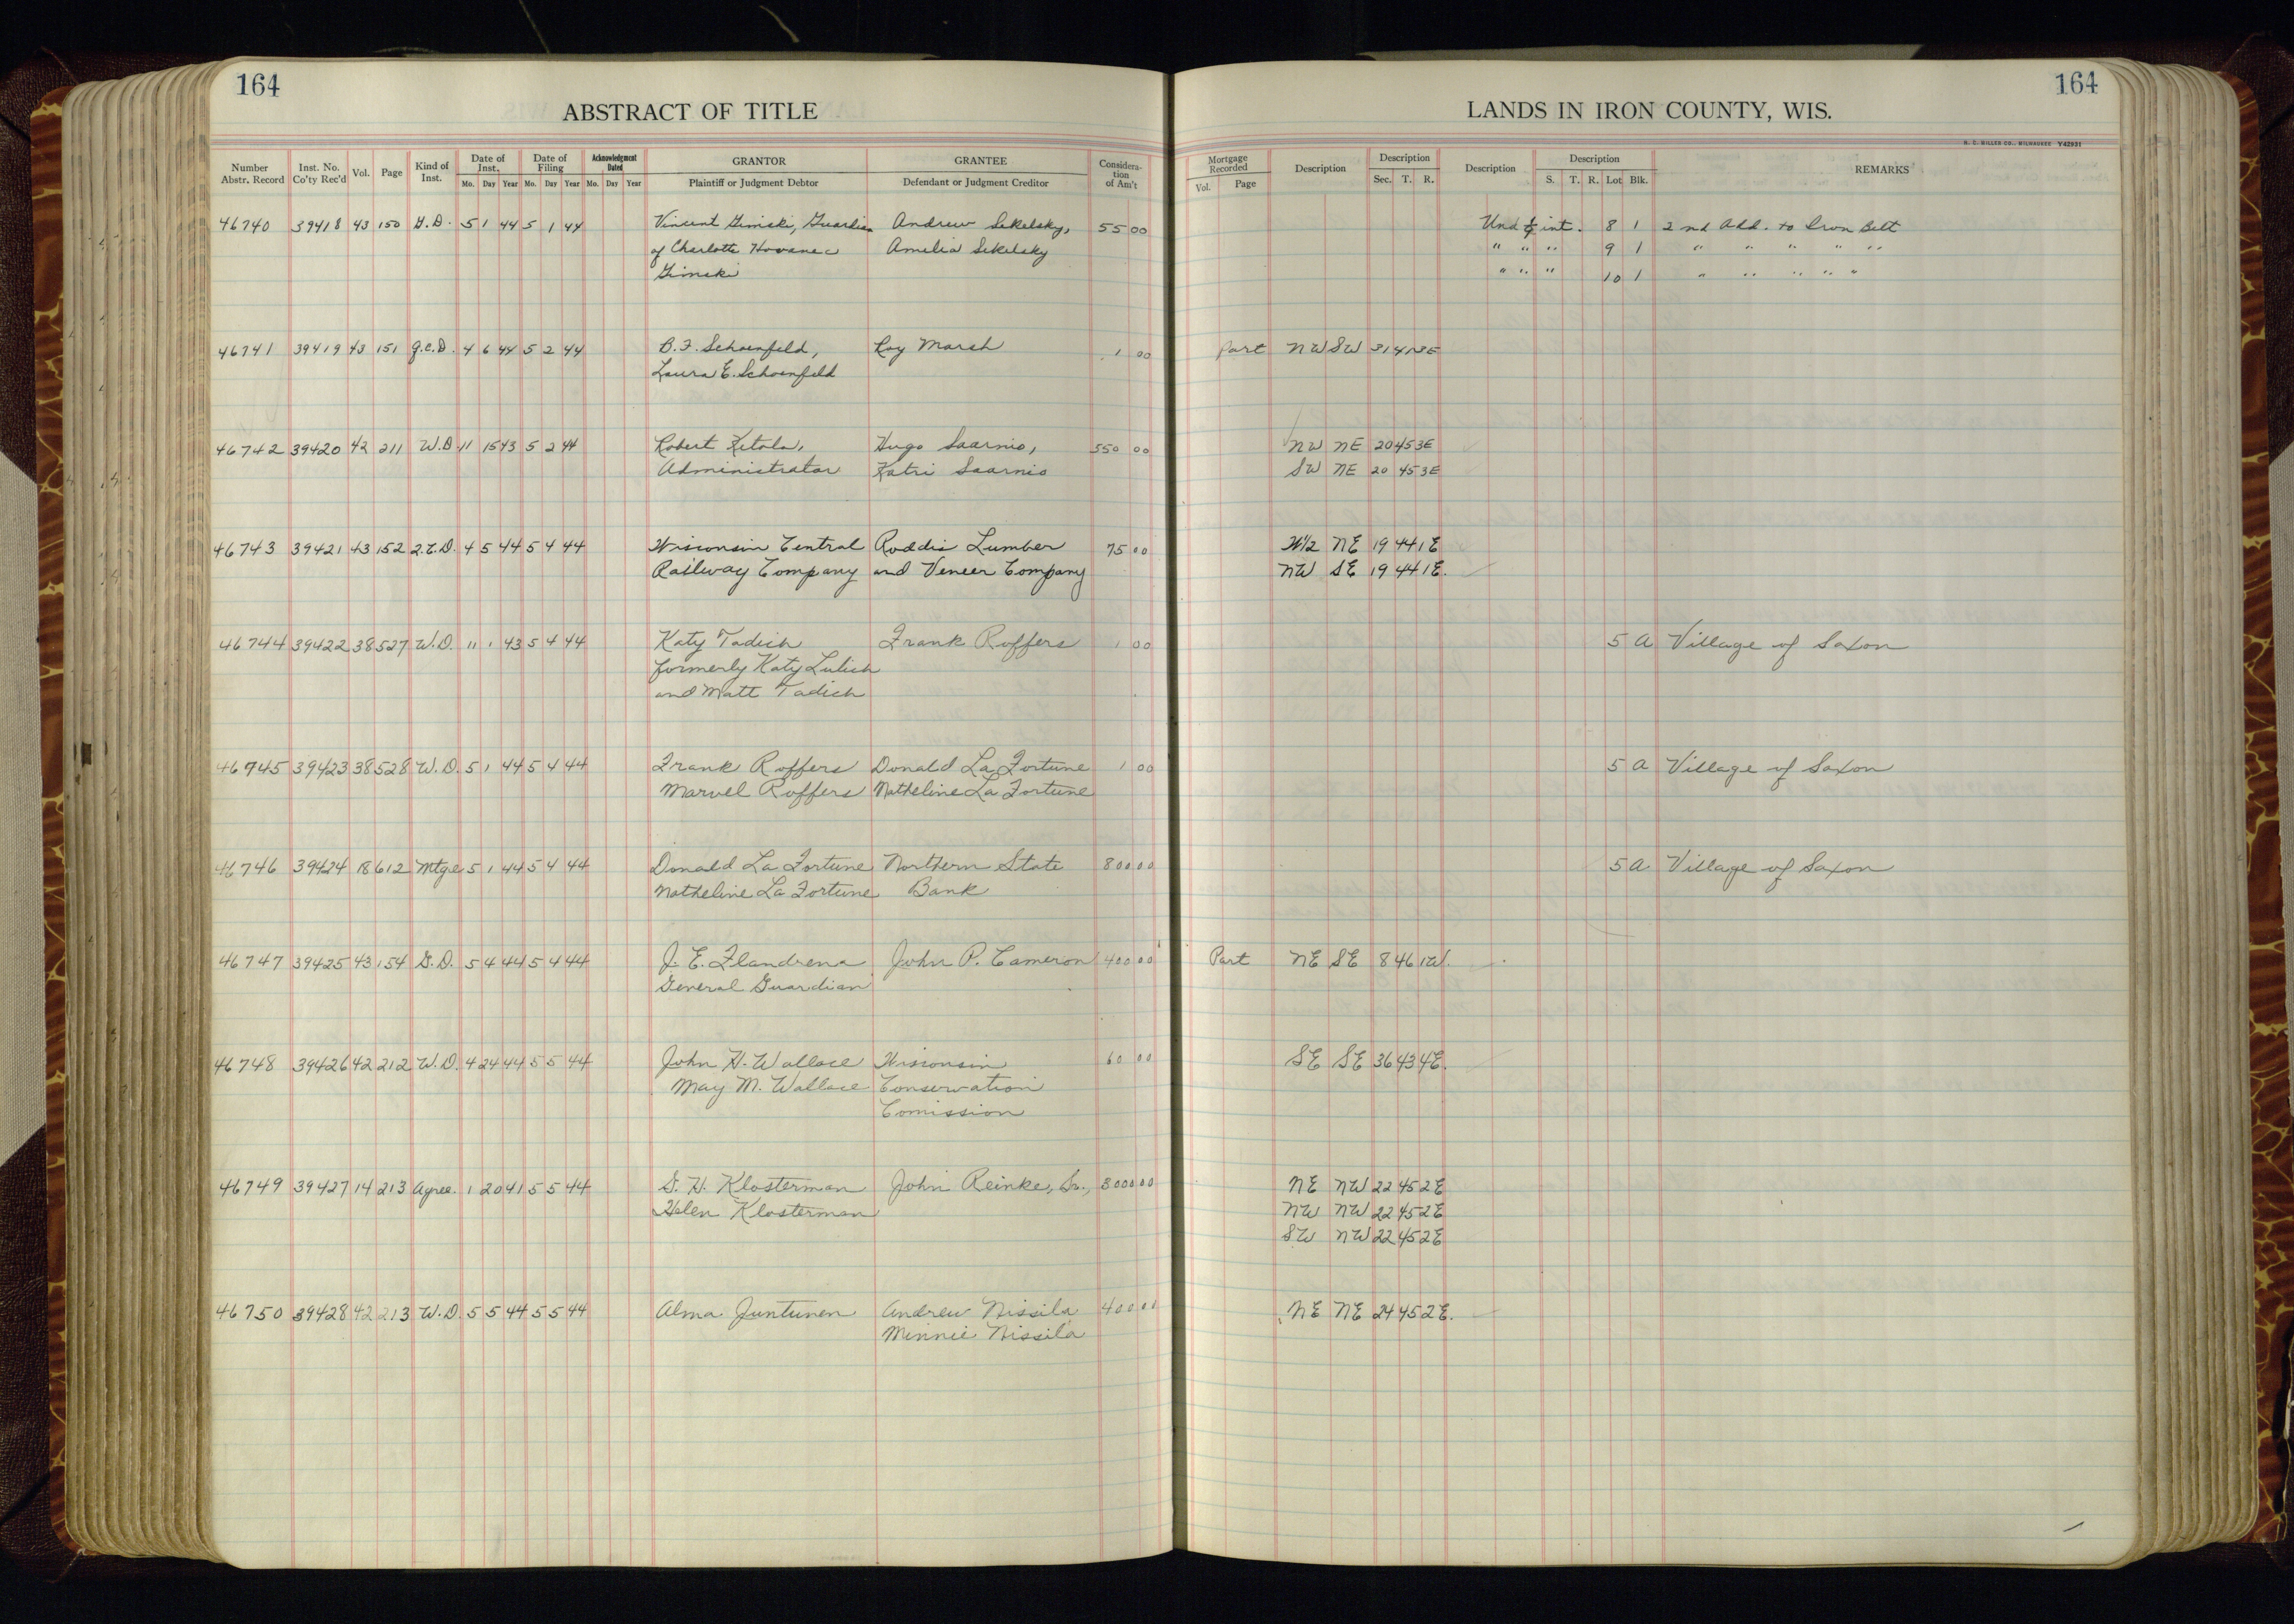 164
164
ABSTRACT OF TITLE
LANDS IN IRON COUNTY, WIS.
H. C. MILLER CO., MILWAUKEE Y42931
Number Abstr. Record Inst. No. Co'ty Rec'd Vol. Page Kind of Inst. Date of Inst. Mo. Day Year Date of Filing Mo. Day Year Acknowledgment Dated Mo. Day Year GRANTOR Plaintiff or Judgment Debtor GRANTEE Defendant or Judgment Creditor Consideration of Am't
Mortgage Recorded Vol. Page Description Description Sec. T. R. Description Description S. T. R. Lot Blk. REMARKS
46740 39418 43 150 G.D. 5 1 44 5 1 44 Vincent Gimski, Guardian Andrew Sekelsky, 55 00 Und int. 8 1 2nd Add. to Iron Belt
of Charlotte Hovanec Amelia Sekelsky " " " 9 1 " " " " "
Gimski " " " 10 1 " " " " "
46741 39419 43 151 Q.C.D. 4 6 44 5 2 44 B.F. Schoenfeld, Roy Marsh 1 00 Part NW SW 31 41 3E
Laura E. Schoenfeld
46742 39420 42 211 W.D. 11 15 43 5 2 44 Robert Ketola, Hugo Saarnio, 550 00 NW NE 20 45 3E
Administrator Katri Saarnio SW NE 20 45 3E
46743 39421 43 152 Q.C.D. 4 5 44 5 4 44 Wisconsin Central Roddis Lumber 75 00 W1/2 NE 19 44 1E
Railway Company and Veneer Company NW SE 19 44 1E.
46744 39422 38 527 W.D. 11 1 43 5 4 44 Katy Tadich Frank Roffers 1 00 5 A Village of Saxon
formerly Katy Lulich
and Matt Tadich
46745 39423 38 528 W.D. 5 1 44 5 4 44 Frank Roffers Donald La Fortune 1 00 5 A Village of Saxon
Marvel Roffers Natheline La Fortune
46746 39424 18 612 Mtge 5 1 44 5 4 44 Donald La Fortune Northern State 800 00 5 A Village of Saxon
Natheline La Fortune Bank
46747 39425 43 154 G.D. 5 4 44 5 4 44 J. E. Flandrena John P. Cameron 400 00 Part NE SE 8 46 1W.
General Guardian
46748 39426 42 212 W.D. 4 24 44 5 5 44 John H. Wallace Wisconsin 60 00 SE SE 36 43 4E.
May M. Wallace Conservation
Comission
46749 39427 14 213 Agree. 1 20 41 5 5 44 G. H. Klosterman John Reinke, Sr., 3000 00 NE NW 22 45 2E
Helen Klosterman NW NW 22 45 2E
SW NW 22 45 2E
46750 39428 42 213 W.D. 5 5 44 5 5 44 Alma Juntunen Andrew Nissila 400 00 NE NE 24 45 2E.
Minnie Nissila